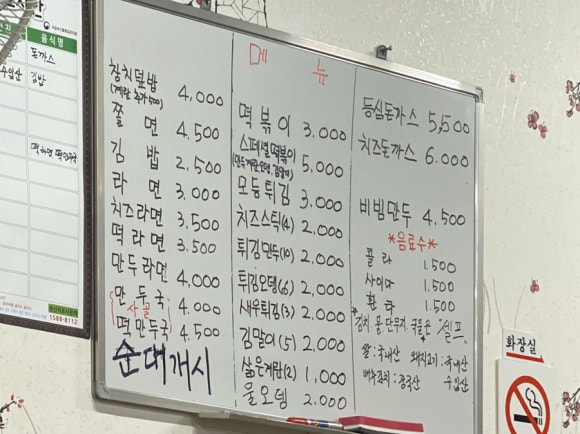 음식명
돈까스
김밥
떡라면 떡만두국
1588-8112
메 뉴
참치덮밥 4,000
(계란 추가 500)
쫄 면 4,500
김 밥 2,500
라 면 3,000
치즈라면 3,500
떡 라 면 3,500
만두라면 4,000
만 두 국 4,000
(사골)
떡만두국 4,500
순대개시
떡 볶 이 3,000
스페셜떡볶이 5,000
(만두계란오뎅.김말이)
모듬튀김 3,000
치즈스틱(4) 2,000
튀김만두(10) 2,000
튀김오뎅(6) 2,000
새우튀김(3) 2,000
김말이(5) 2,000
삶은계란(2) 1,000
물오뎅 2,000
등심돈까스 5,500
치즈돈까스 6.000
비빔만두 4,500
*음료수*
콜 라 1.500
사이다 1.500
환 타 1.500
*김치 물.단무지. 국물은 셀프.
쌀:국내산 돼지고기:국내산
배추김치:중국산 수입산
화장실